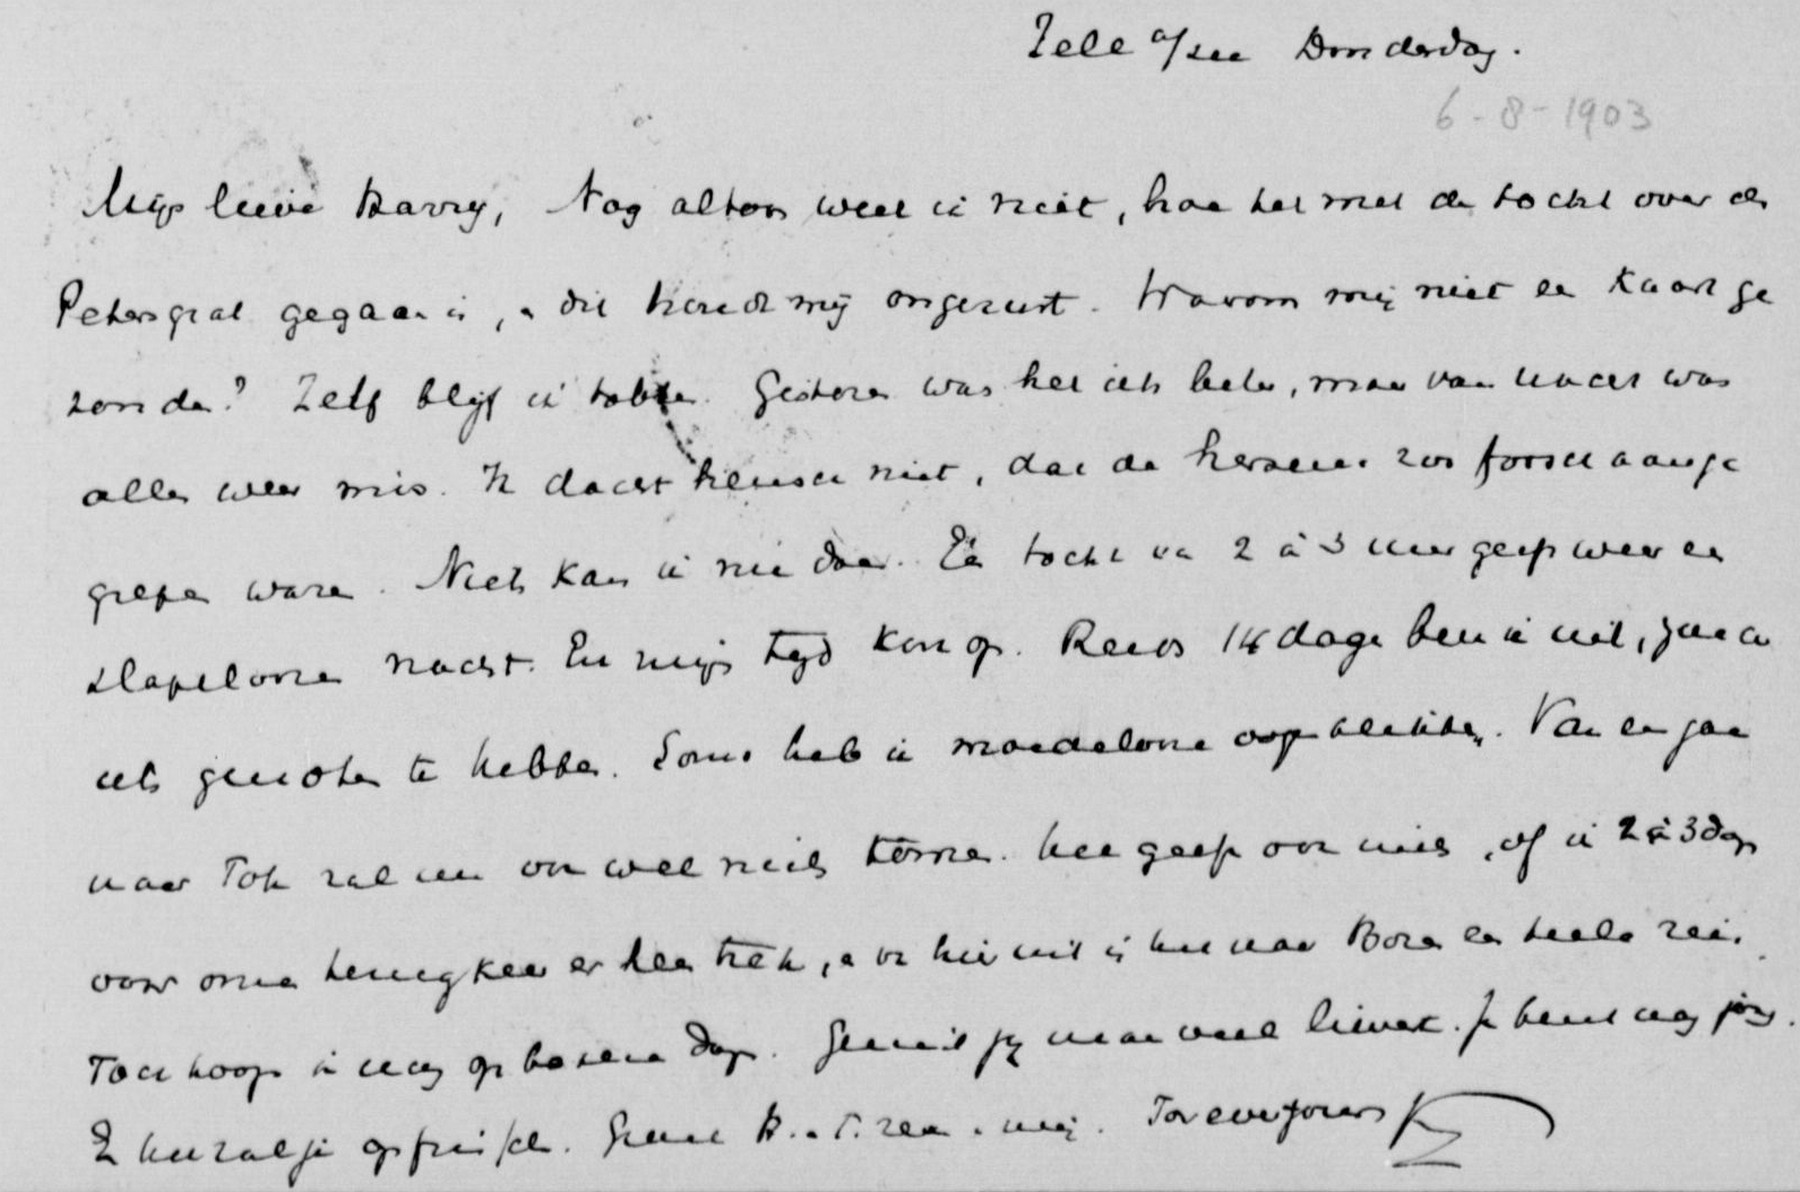 Zell a/see Donderdag.
6-8-1903
Mijn lieve Harry, Nog altoos weet ik niet, hoe het met de tocht over de
Petersgrat gegaan is, en dit houdt mij ongerust. Waarom mij niet een kaart ge
zonden? Zelf blijf ik tobben. Gisteren was het iets beter, maar van nacht was
alles weer mis. Ik dacht heusch niet, dat de hersenen zoo forsch aange
grepen waren. Niets kan ik nu doen. Een tocht van 2 à 3 uur geeft weer een
slapelooze nacht. En mijn tijd kort op. Reeds 14 dagen ben ik uit, zonder
iets genoten te hebben. Soms heb ik moedelooze oogenblikken. Van en gaan
naar Toh zal nu ook wel niets komen. Het geeft ook niets, of ik 2 à 3 dagen
voor onze terugkeer er heen trek, en van hier uit is het naar Bozen een heele reis.
Toch hoop ik nog op betere dagen. Geniet jij maar veel lievert. Je bent nog jong.
En het zal je opfrisschen. Groet H. en T. zeer van mij. Toreenjours K